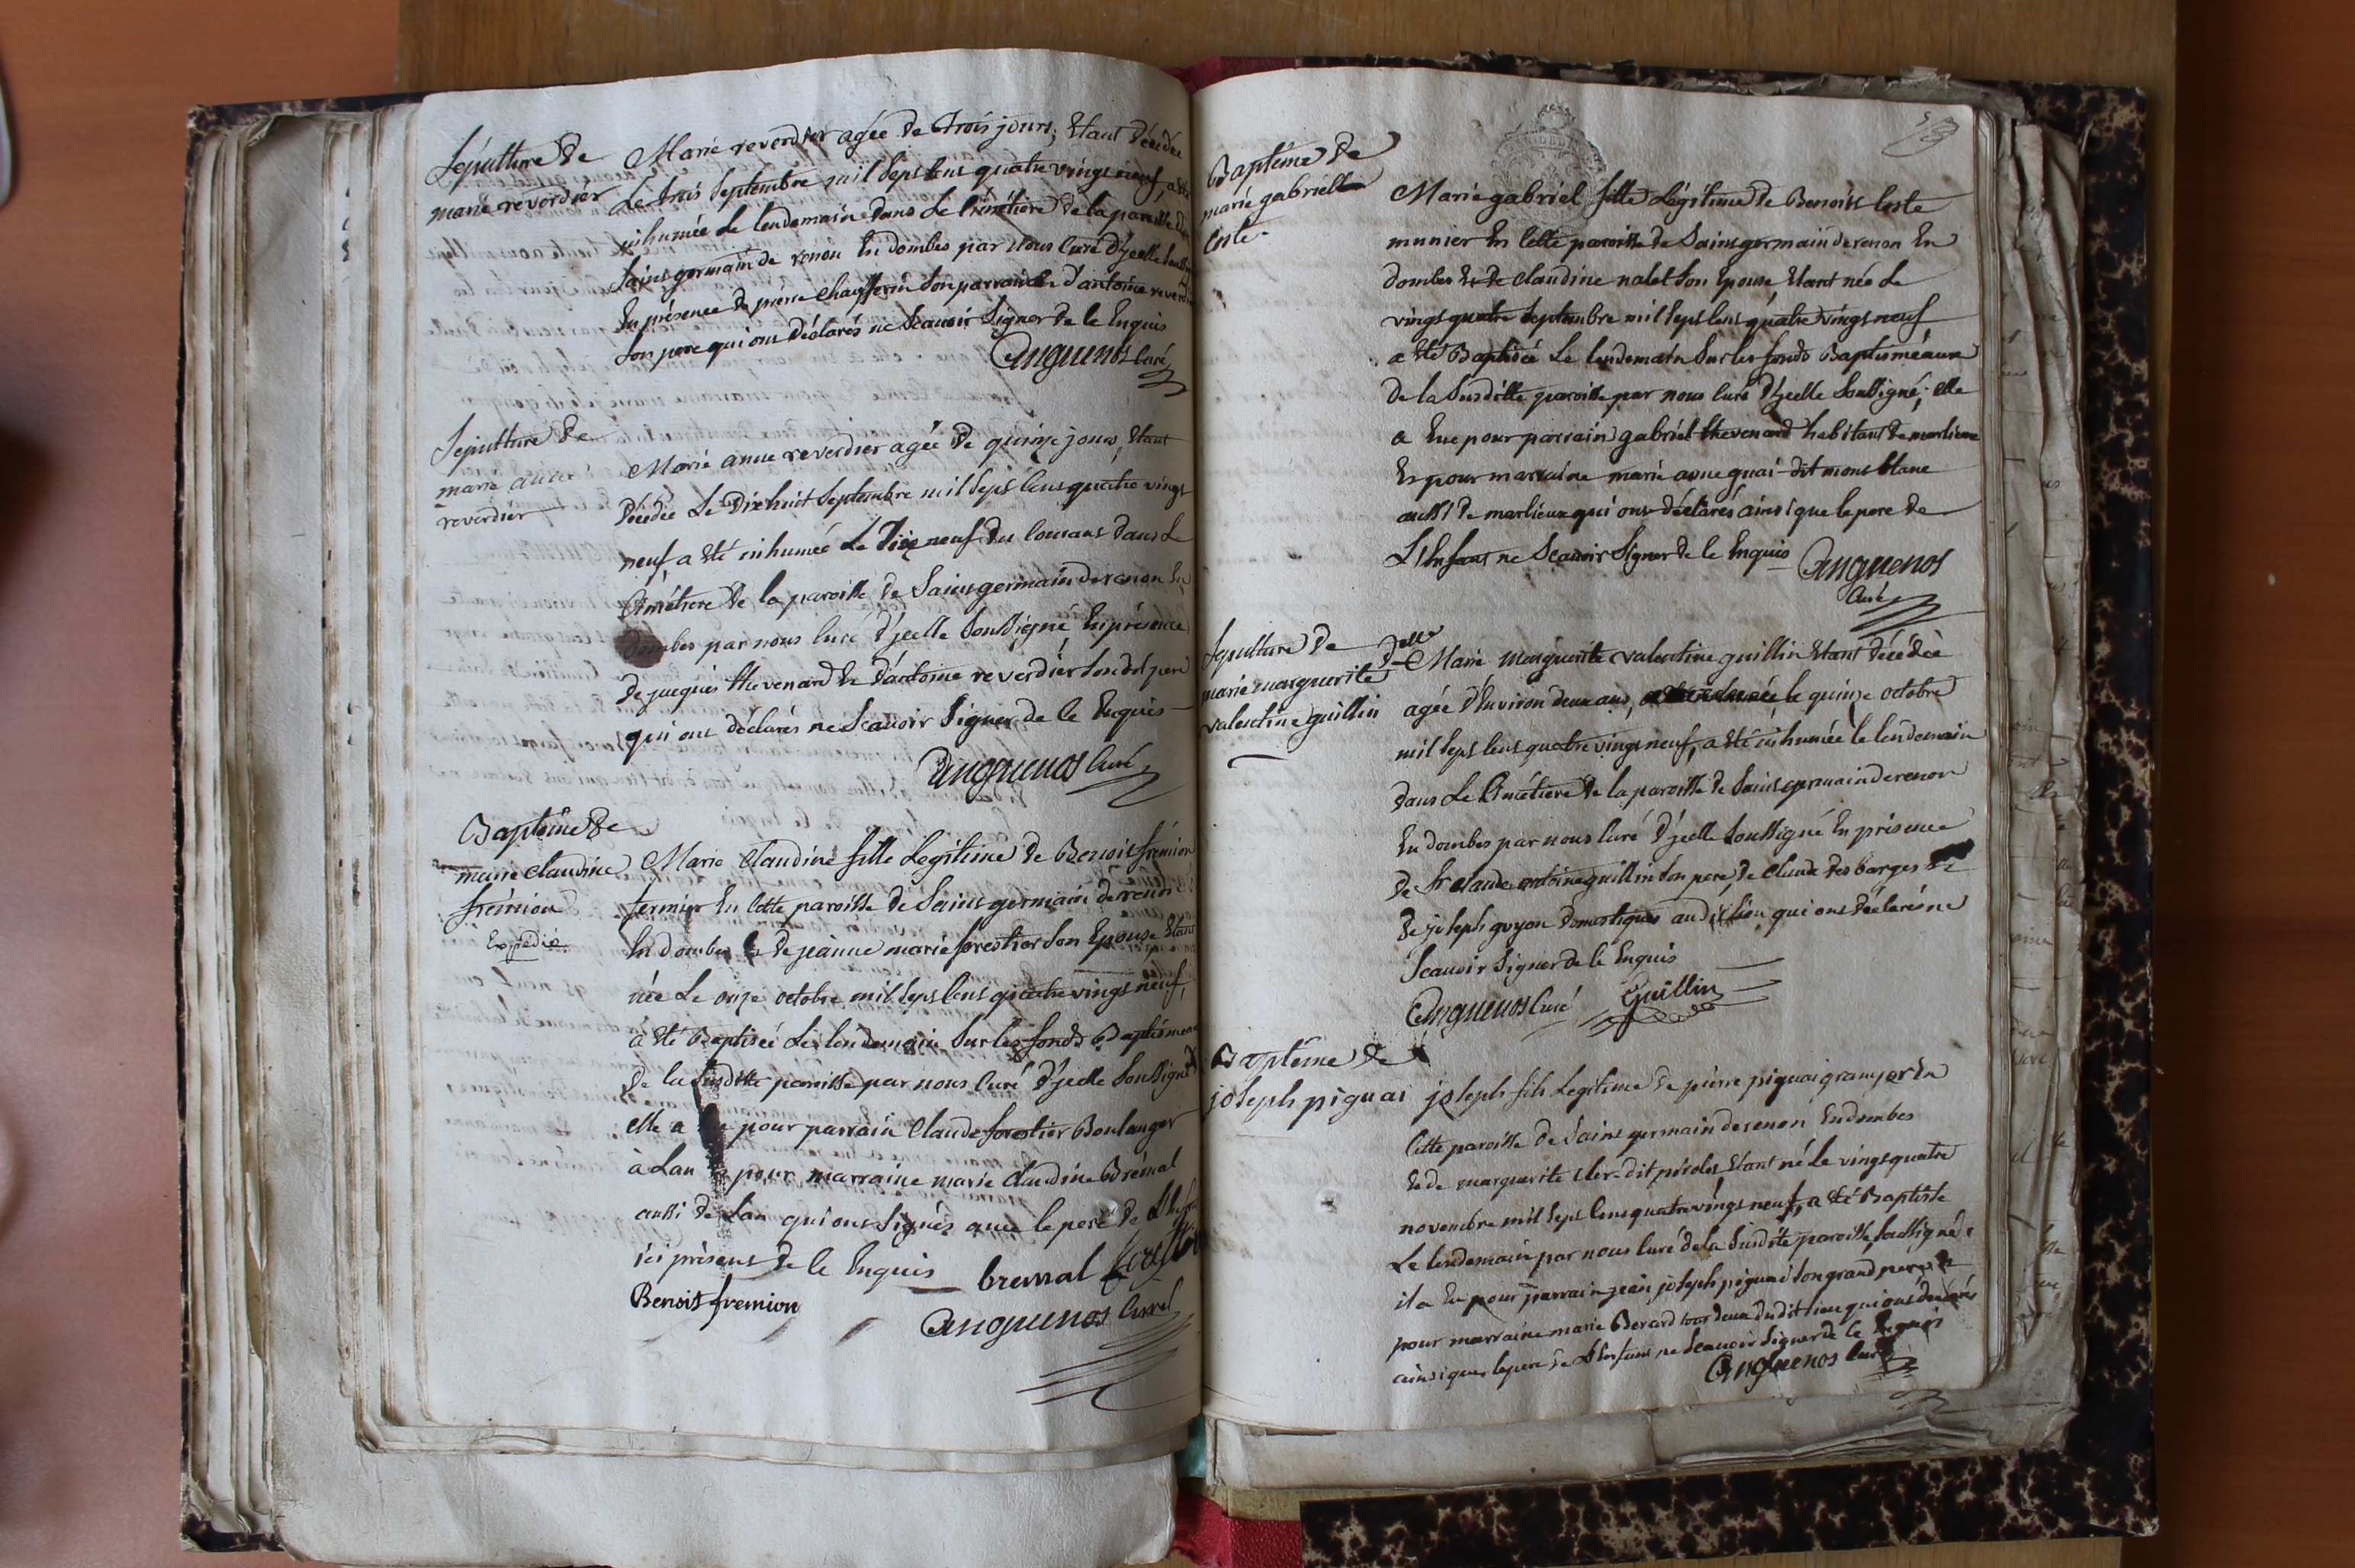 Sépulture de
marie reverdier
Marie reverdier agée de trois jours, Etant décédée
Le trois Septembre mil Sept Cens quatre vingt neuf, a été
inhumée Le lendemain dans Le Cimétière de la paroisse de
Saint germain de renon En dombes par nous Curé d'ycelle
En présence de pierre Chaufferin son parrain Et d'antoine reverdier
Son pere qui ont déclarés ne Scavoir Signer de ce Enquis
Anguenos Curé
Sepulture de
marie anne
reverdier
Marie anne reverdier agée de quinze jours, Etant
décédée Le Dixhuit Septembre mil Sept Cens quatre vingt
neuf a été inhumée Le Dix neuf du Courant dans Le
Cimétiere de la paroisse de Saint germain de renon En
dombes par nous Curé d'ycelle Soussigné En présence
De jacques thevenard Et d'antoine reverdier Son dit pere
qui ont déclarés ne Scavoir Signer de ce Enquis
Anguenos Curé
Baptême de
marie claudine
frémion
Expédié
Marie Claudine fille Legitime de Benoit frémion
fermier En Cette paroisse de Saint germain de renon
En dombes Et de jeanne marie forestier Son Epouse Etant
née Le onze octobre mil Sept Cens quatre vingt neuf,
a été Baptisée Le lendemain Sur les fonds Baptismeaux
De la Susditte paroisse par nous Curé d'ycelle Soussigné
elle a pour parrain Claude forestier Boulanger
à Lan Et pour marraine marie Claudine Brémal
aussi de Lan qui ont Signés avec le pere de L'Enfant
ici présent de ce Enquis bremal
Benoit fremion
Anguenos Curé
53
Baptême de
marie gabrielle
Coste
Marie gabriel fille Légitime de Benoist Coste
munier En Cette paroisse de Saint germain de renon En
dombes Et de Claudine nalet Son Epouse Etant née Le
vingt quatre Septembre mil Sept Cens quatre vingt neuf
a été Baptisée Le lendemain Sur les fonds Baptismeaux
de la Susditte paroisse par nous Curé d'ycelle Soussigné; elle
a Eue pour parrain gabriel thevenard habitant de marlieux
Et pour marraine marie anne guai dit mont blanc
aussi de marlieux qui ont déclarés ainsi que le pere de
L'Enfant ne Scavoir Signer de ce Enquis Anguenos
Curé
Sepulture de
marie marguerite
valentine guillin
Delle Marie Marguerite valentine guillin Etant décédée
agée d'Environ deux ans, le quinze octobre
mil Sept Cens quatre vingt neuf, a été inhumée le lendemain
dans Le Cimétiere de la paroisse de Saint germain de renon
En dombes par nous Curé d'ycelle Soussigné En présence
de Sr claude antoine guillin Son pere, de claude des barges Et
De joseph guyon domestiques audit lieu qui ont déclarés ne
Scavoir Signer de ce Enquis
Anguenos Curé Guillin
Baptême de
joseph piguai
joseph fils Legitime de pierre piguai granger En
Cette paroisse de Saint germain de renon En dombes
Et de marguerite dit Etant né Le vingt quatre
novembre mil Sept Cens quatre vingt neuf, a été Baptisé
Le lendemain par nous Curé de la Susditte paroisse, Soussigné;
il a Eu pour parrain jean joseph piguai Son grand pere Et
pour marraine marie Berard tous deux dudit lieu qui ont déclarés
ainsi que le pere de L'Enfant ne Scavoir Signer de ce Enquis
Anguenos Curé